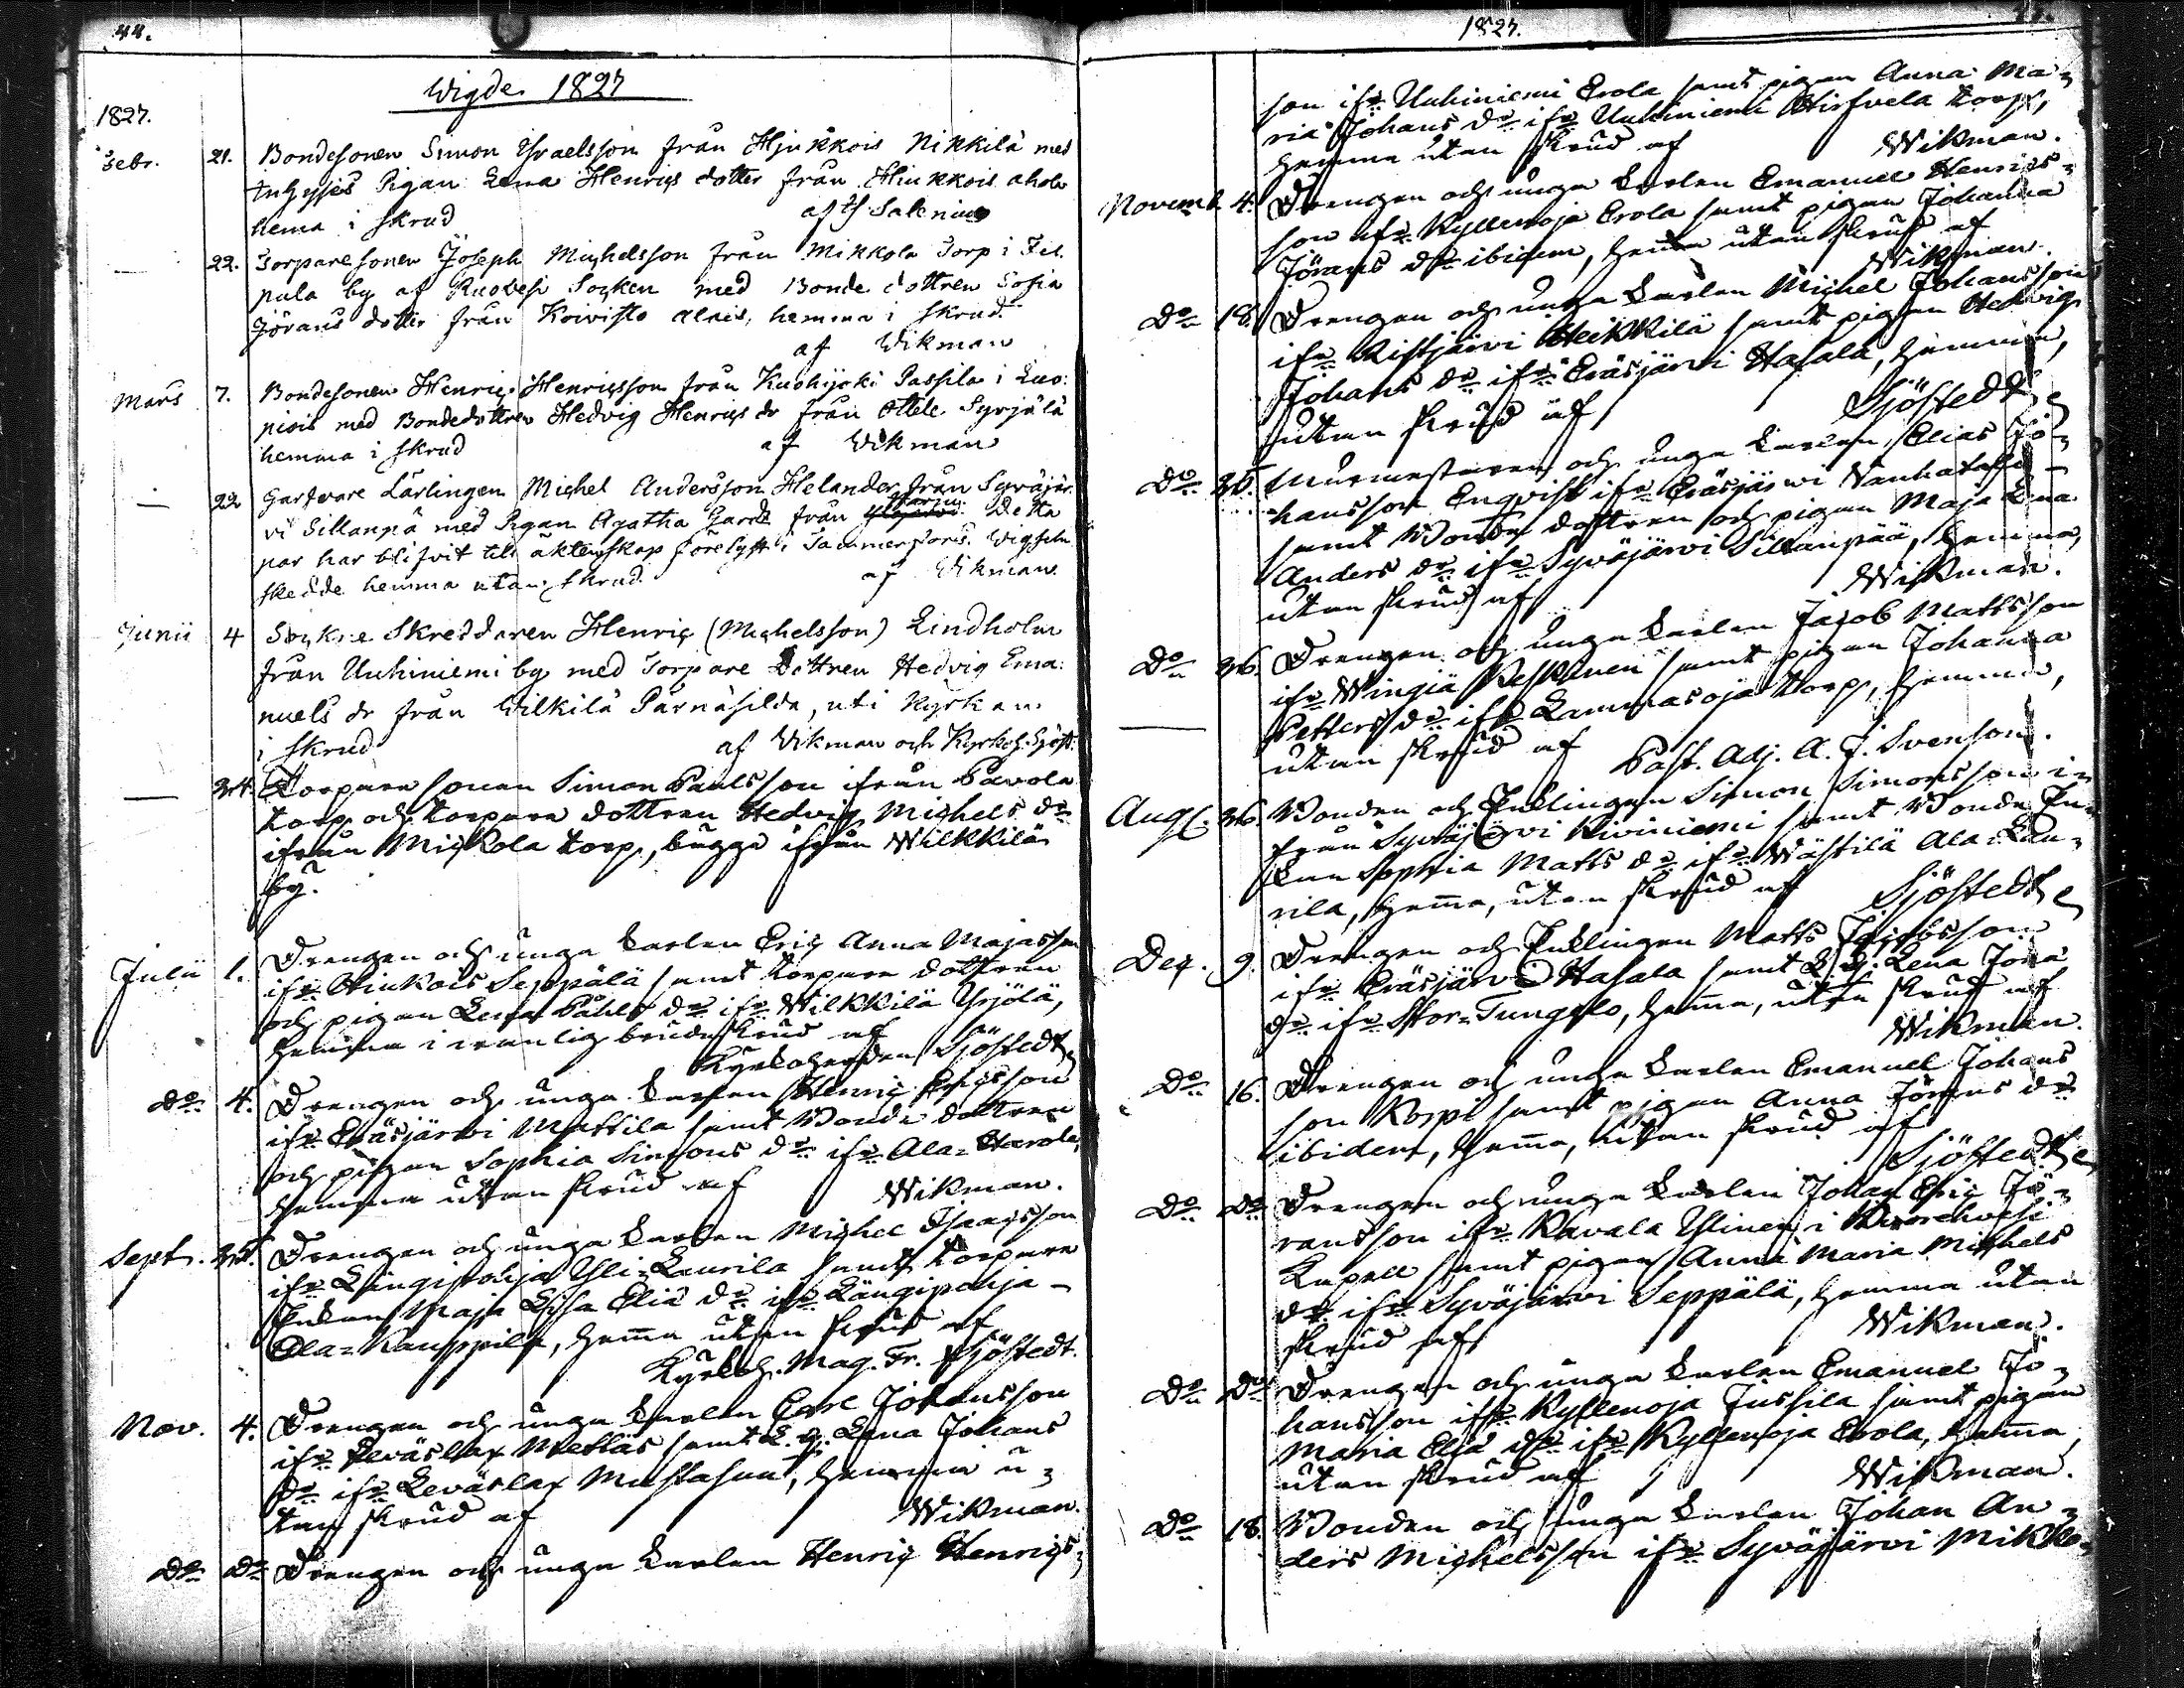 44.
Wigde 1827
1827.
Febr. 21. Bondesonen Simon Ysraelsson från Hjukkois Nikkilä med
Inhyses Pigan Lena Henrics dotter från Hiukkois ahola
hema i skrud af Salenius
— 22. Torparesonen Joseph Michelsson från Mikkola Torp i
pula by af Ruovesi Socken med Bonde dottren Sofia
Jörans dotter från Koivisto Alais, hemma i skrud.
af Wikman
Mars 7. Bondesonen Henric Henricsson från Kuohijoki Passila i Luo:
piois med Bondedottren Hedvig Henrics dr från Ottila Syrjälä
hemma i skrud af Wikman
— 22 Garfvare Lärlingen Michel Andersson Helander från Syväjär
vi Sillanpä med Pigan Agatha Gards från Detta
par har blifvit till äktenskap förelyst i Tammerfors. Wigseln
skedde hemma utan skrud. af Wikman.
Junii 4 Sockne Skreddaren Henric (Michelsson) Lindholm
från Uuhiniemi by med Torpare Dottren Hedvig Ema:
nuels dr från Wilkilä Pärnäsilda, uti Kyrkan
i skrud af Wikman och Kyrkoh. Sjöst:
— 24. Torpare sonen Simon Paulsson ifrån Pavola
torp och torpare dottren Hedvig Michels dr
ifrån Mickola torp, bägge ifrån Wilkkilä
by.
Julii 1. Drengen och unga karlen Eric Anna Majasson
ifr Hiukois Seppälä samt torpare dottren
och pigan Lena Påhls dr ifr Wilkkilä Yrjölä,
hemma i vanlig brudeskrud af
Kyrkoherden Sjöstedt
do 4. Drengen och unga karlen Henric Ericsson
ifr Eräsjärvi Mattila samt Bonde dottren
och pigan Sophia Simons dr ifr Ala-Harola,
hemma utan skrud af Wikman.
Sept. 25. Drengen och unga karlen Michel Isaacsson
ifr Längipohja Yli-Laurila samt torpare
Enkan Maja Lisa Eliæ dr ifr Längipohja
Ala-Kauppila, hemma utan skrud af
Kyrkoh. Mag. Fr. Sjöstedt.
Nov. 4. Drengen och unga karlen Carl Johansson
ifr Leväslax Mellas samt L. q. Lena Johans
dr ifr Leväslax Mustasuu, hemma u-
tan skrud af Wikman.
Do Do Drengen och unga karlen Henric Henrics-
1827.
son ifr Uuhiniemi Erola samt pigan Anna Ma-
ria Johans dr ifr Uuhiniemi Hirsvela torp,
hemma utan skrud af Wikman.
Novemb. 4. Drengen och unga karlen Emanuel Henrics-
son ifr Kyllenoja Erola samt pigan Johanna
Jörans dr ibidem, hemma utan skrud af
Wikman.
Do 18. Drengen och unga karlen Michel Johansson
ifr Ristjärvi Heikkilä samt pigan Hedvig
Johans dr ifr Eräsjärvi Hasala, hemma,
utan skrud af Sjöstedt
Do 25. Murmestaren och unga karlen Elias Jo-
hansson Enqvist ifr Eräsjärvi Vanhatalo
samt Bonde dottren och pigan Maja Lena
Anders dr ifr Syväjärvi Sillanpää, hemma,
utan skrud af Wikman.
Do 26. Drengen och unga karlen Jacob Mattsson
ifr Wingiä Keskinen samt pigan Johanna
Petters dr ifr Lammasoja torp, hemma,
utan skrud af Past. Adj. A. J. Svenson.
Aug. 26. Bonden och Enklingen Simon Simonsson i-
från Syväjärvi Kiviniemi samt Bonde En-
kan Sophia Matts dr ifr Wästilä Ala-Lau-
rila, hemma, utan skrud af Sjöstedt
Dec. 9. Drengen och Enklingen Matts Jacobsson
ifr Eräsjärvi Hasala samt L. q. Lena Jona
dr ifr Stor-Tungelo, hemma, utan skrud af
Wikman.
Do 16. Drengen och unga karlen Emanuel Johans
son Korpi samt pigan Anna Jörans dr
ibidem, hemma, utan skrud af
Sjöstedt
Do Do Drengen och unga karlen Johan Eric Jö-
ransson ifr Kavala Ylinen i Kuorehvesi
Kapell samt pigan Anna Maria Michels
dr ifr Syväjärvi Seppälä, hemma utan
skrud af Wikman.
Do Do Drengen och unga karlen Emanuel Jo-
hansson ifr Kyllenoja Jussila samt pigan
Maria Eliæ dr ifr Kyllenoja Erola, hemma,
utan skrud af Wikman.
Do 18. Bonden och unga karlen Johan An-
ders Michelsson ifr Syväjärvi Mikko-